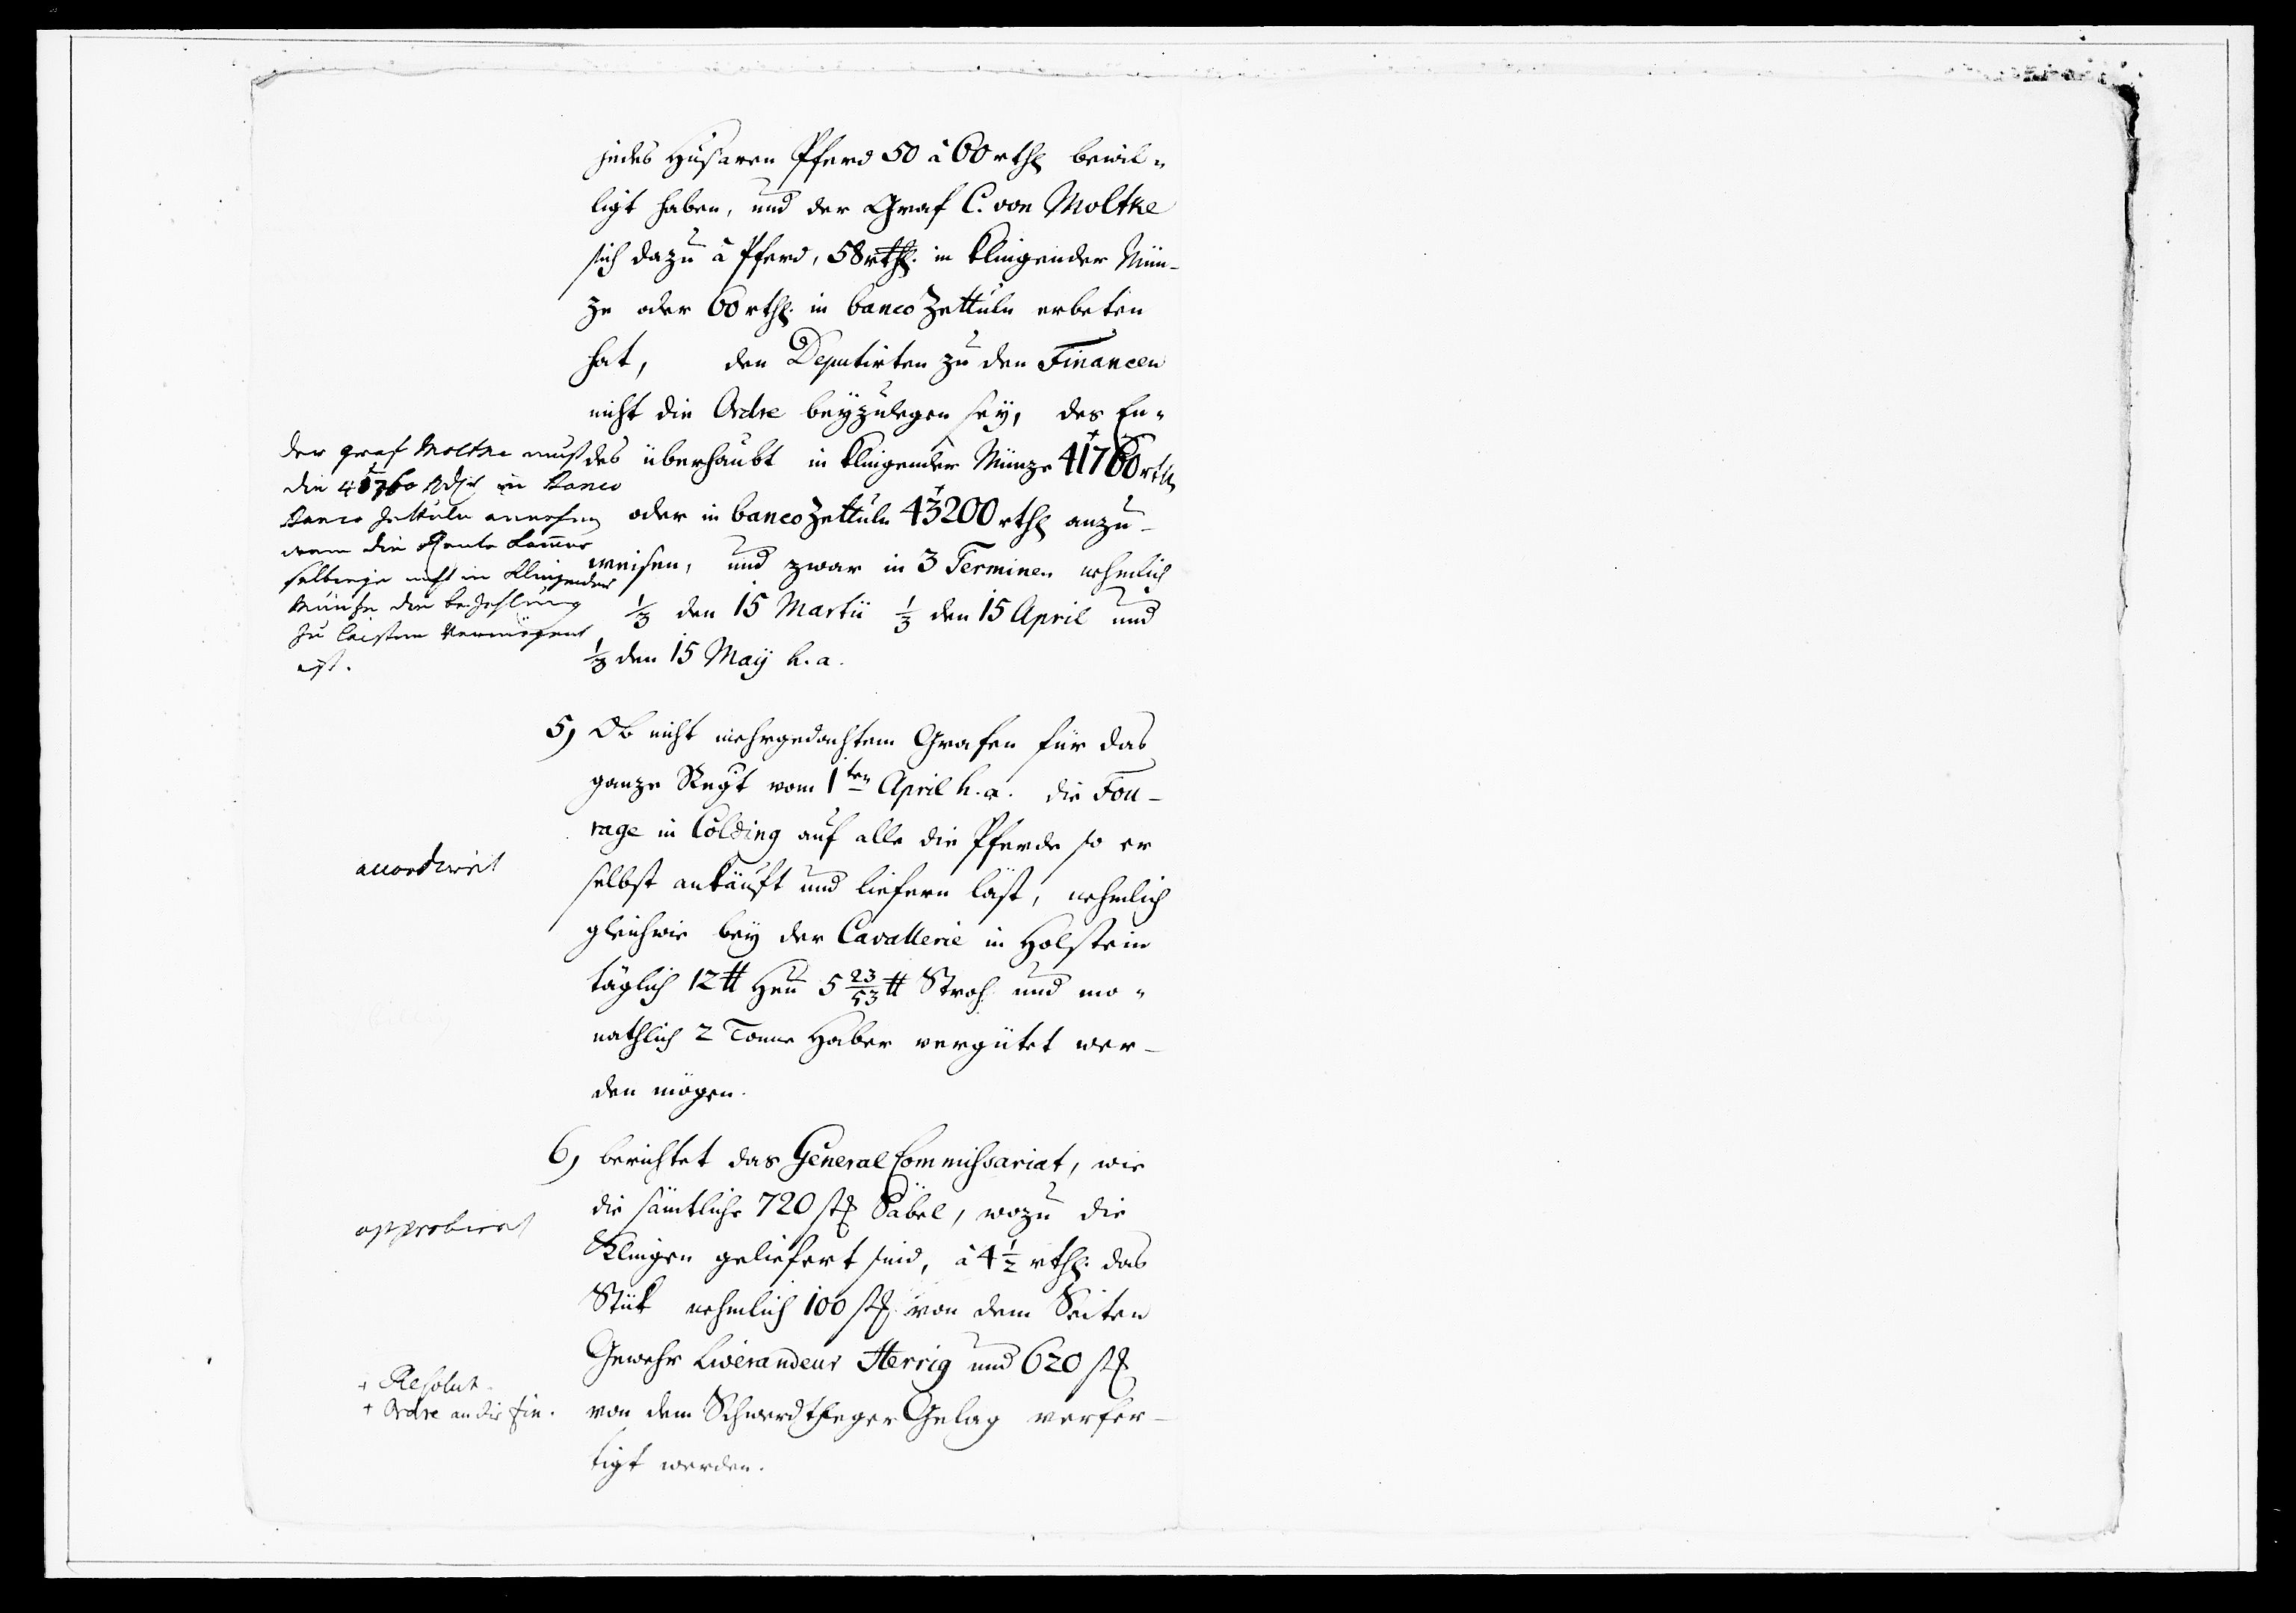 jedes Husaren Pferd 50 à 60 rthl bewil-
ligt haben, und der Graf C. von Moltke
sich dazu à Pferd, 58 rthl. in klingender Mün-
ze oder 60 rthl. in banco Zettuln erbeten
hat, den Deputirten zu den Financen
nicht die Ordre beyzulegen sey, des En-
des überhaubt in klingender Münze 41760 rthl
oder in banco Zettuln 43200 rthl anzu-
weisen, und zwar in 3 Terminen nehmlich
1/3 den 15 Martii 1/3 den 15 April und
1/3 den 15 Maÿ h. a.
der graf Moltke muß
die 41760 Rdhl in Banco
Banco Zettuln annehmen
wenn die Rente Kammer
selbige nicht in Klingender
Müntze die bezahlung
zu leisten Vermögent
ist.
5, Ob nicht mehrgedachtem Grafen für das
ganze Regt vom 1ten April h. a. die Fou-
rage in Colding auf alle die Pferde so er
selbst ankäuft und liefern läst, nehmlich
gleichwie bey der Cavallerie in Holstein
täglich 12 ℔ Heu 5 23/53 ℔ Stroh und mo-
nathlich 2 Tonne Haber vergütet wer-
den mögen.
accordiret
6, berichtet das General Commissariat, wie
die sämtliche 720 stk Säbel, wozu die
Klingen geliefert sind, à 4 1/2 rthl. das
Stük nehmlich 100 stk von dem Seiten
Gewehr Liverandeur Herrig und 620 stk
von dem Schwerdtfeger Gelag verfer-
tigt werden.
approbiret
+ Resolut.
+ Ordre an die Fin.